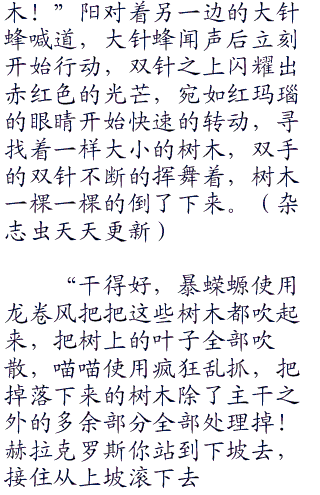 木！”阳对着另一边的大针
蜂喊道，大针蜂闻声后立刻
开始行动，双针之上闪耀出
赤红色的光芒，宛如红玛瑙
的眼睛开始快速的转动，寻
找着一样大小的树木，双手
的双针不断的挥舞着，树木
一棵一棵的倒了下来。（杂
志虫天天更新）
“干得好，暴蝾螈使用
龙卷风把把这些树木都吹起
来，把树上的叶子全部吹
散，喵喵使用疯狂乱抓，把
掉落下来的树木除了主干之
外的多余部分全部处理掉！
赫拉克罗斯你站到下坡去，
接住从上坡滚下去